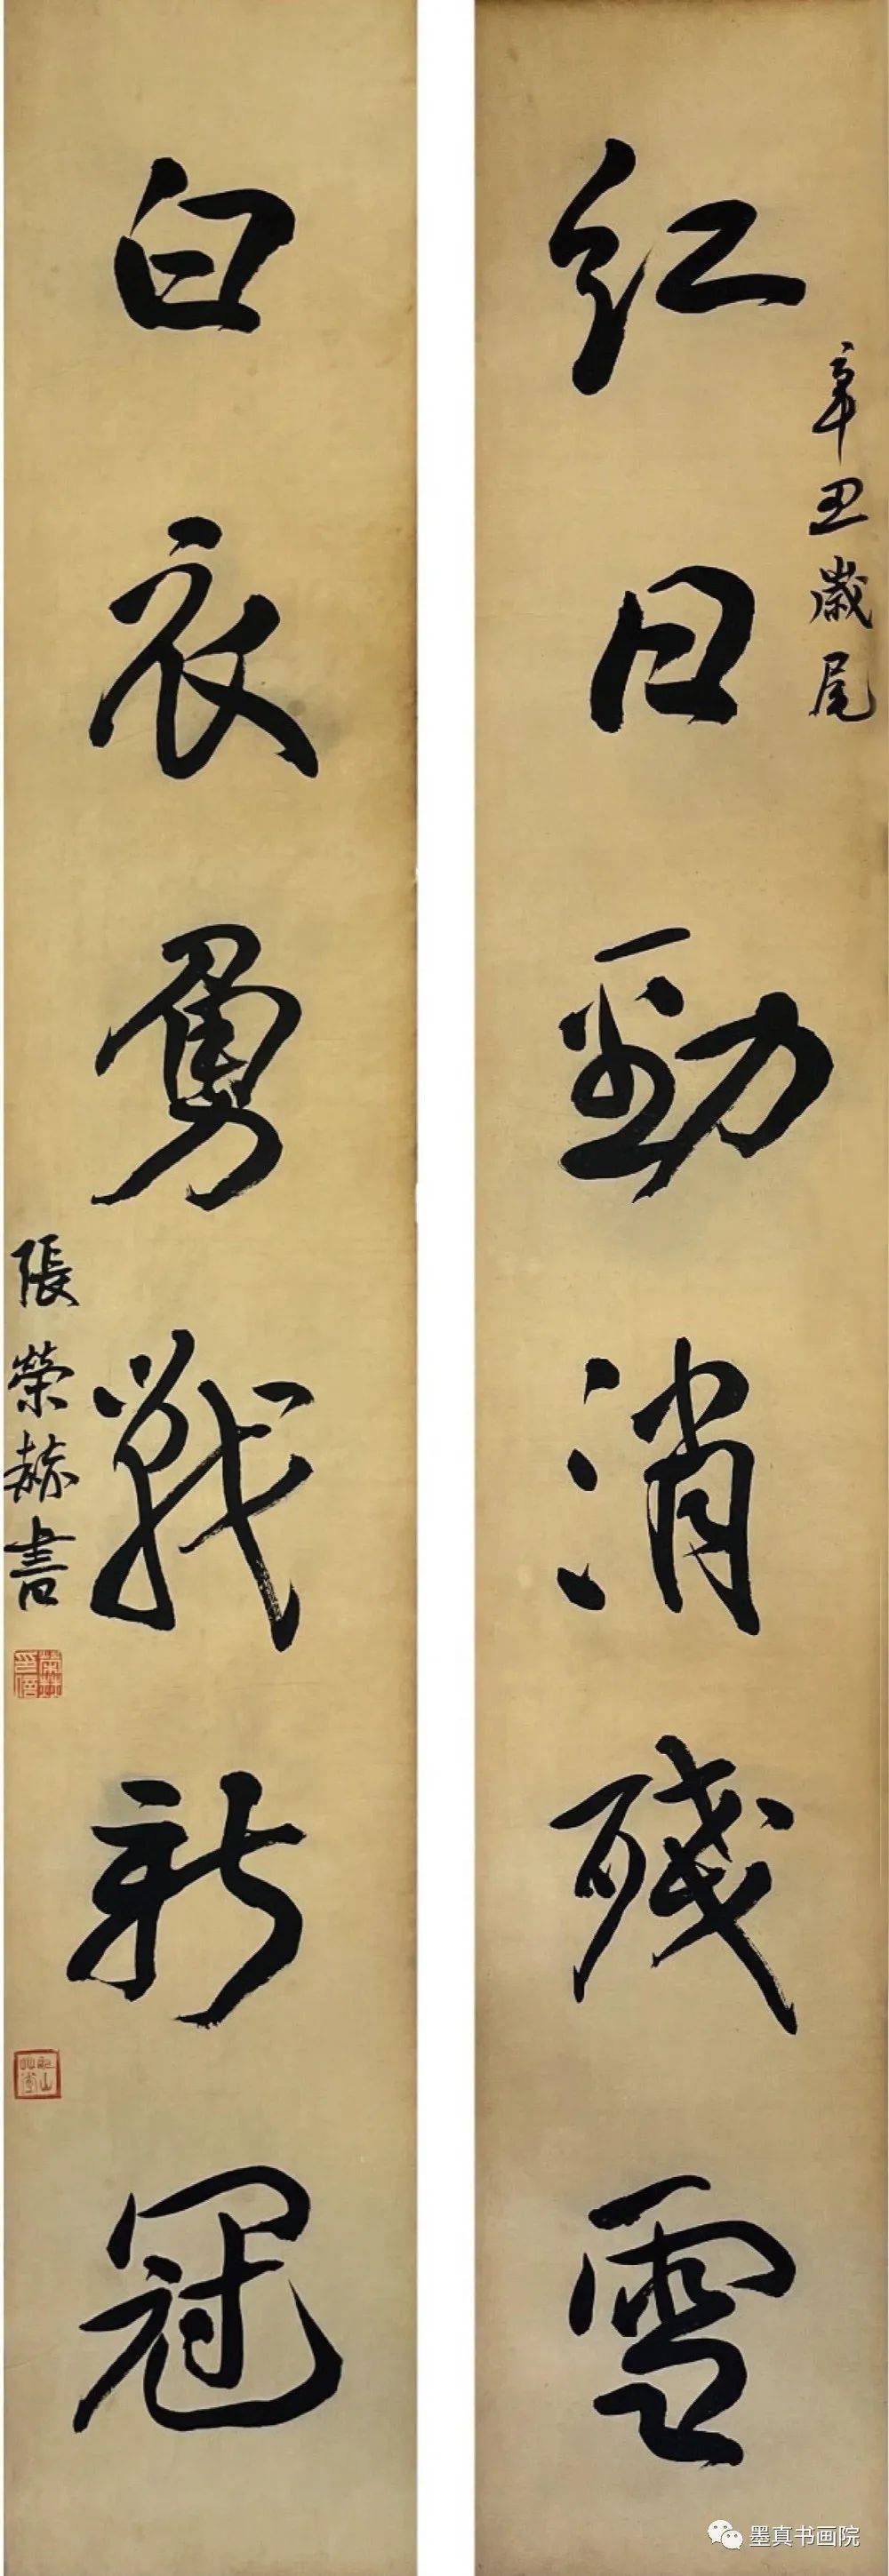 辛丑歲尾
红日勁消殘雪
白衣勇戰新冠
張榮赫書
墨真书画院